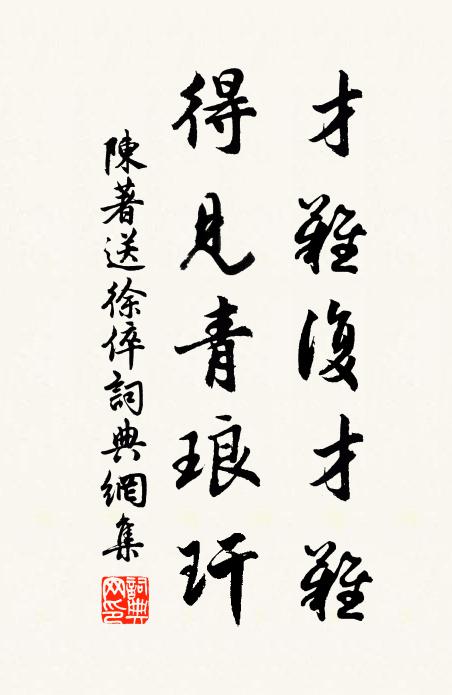 才難復才難
得見青琅玕
陳著送徐倅詞典網集
詞典
网印